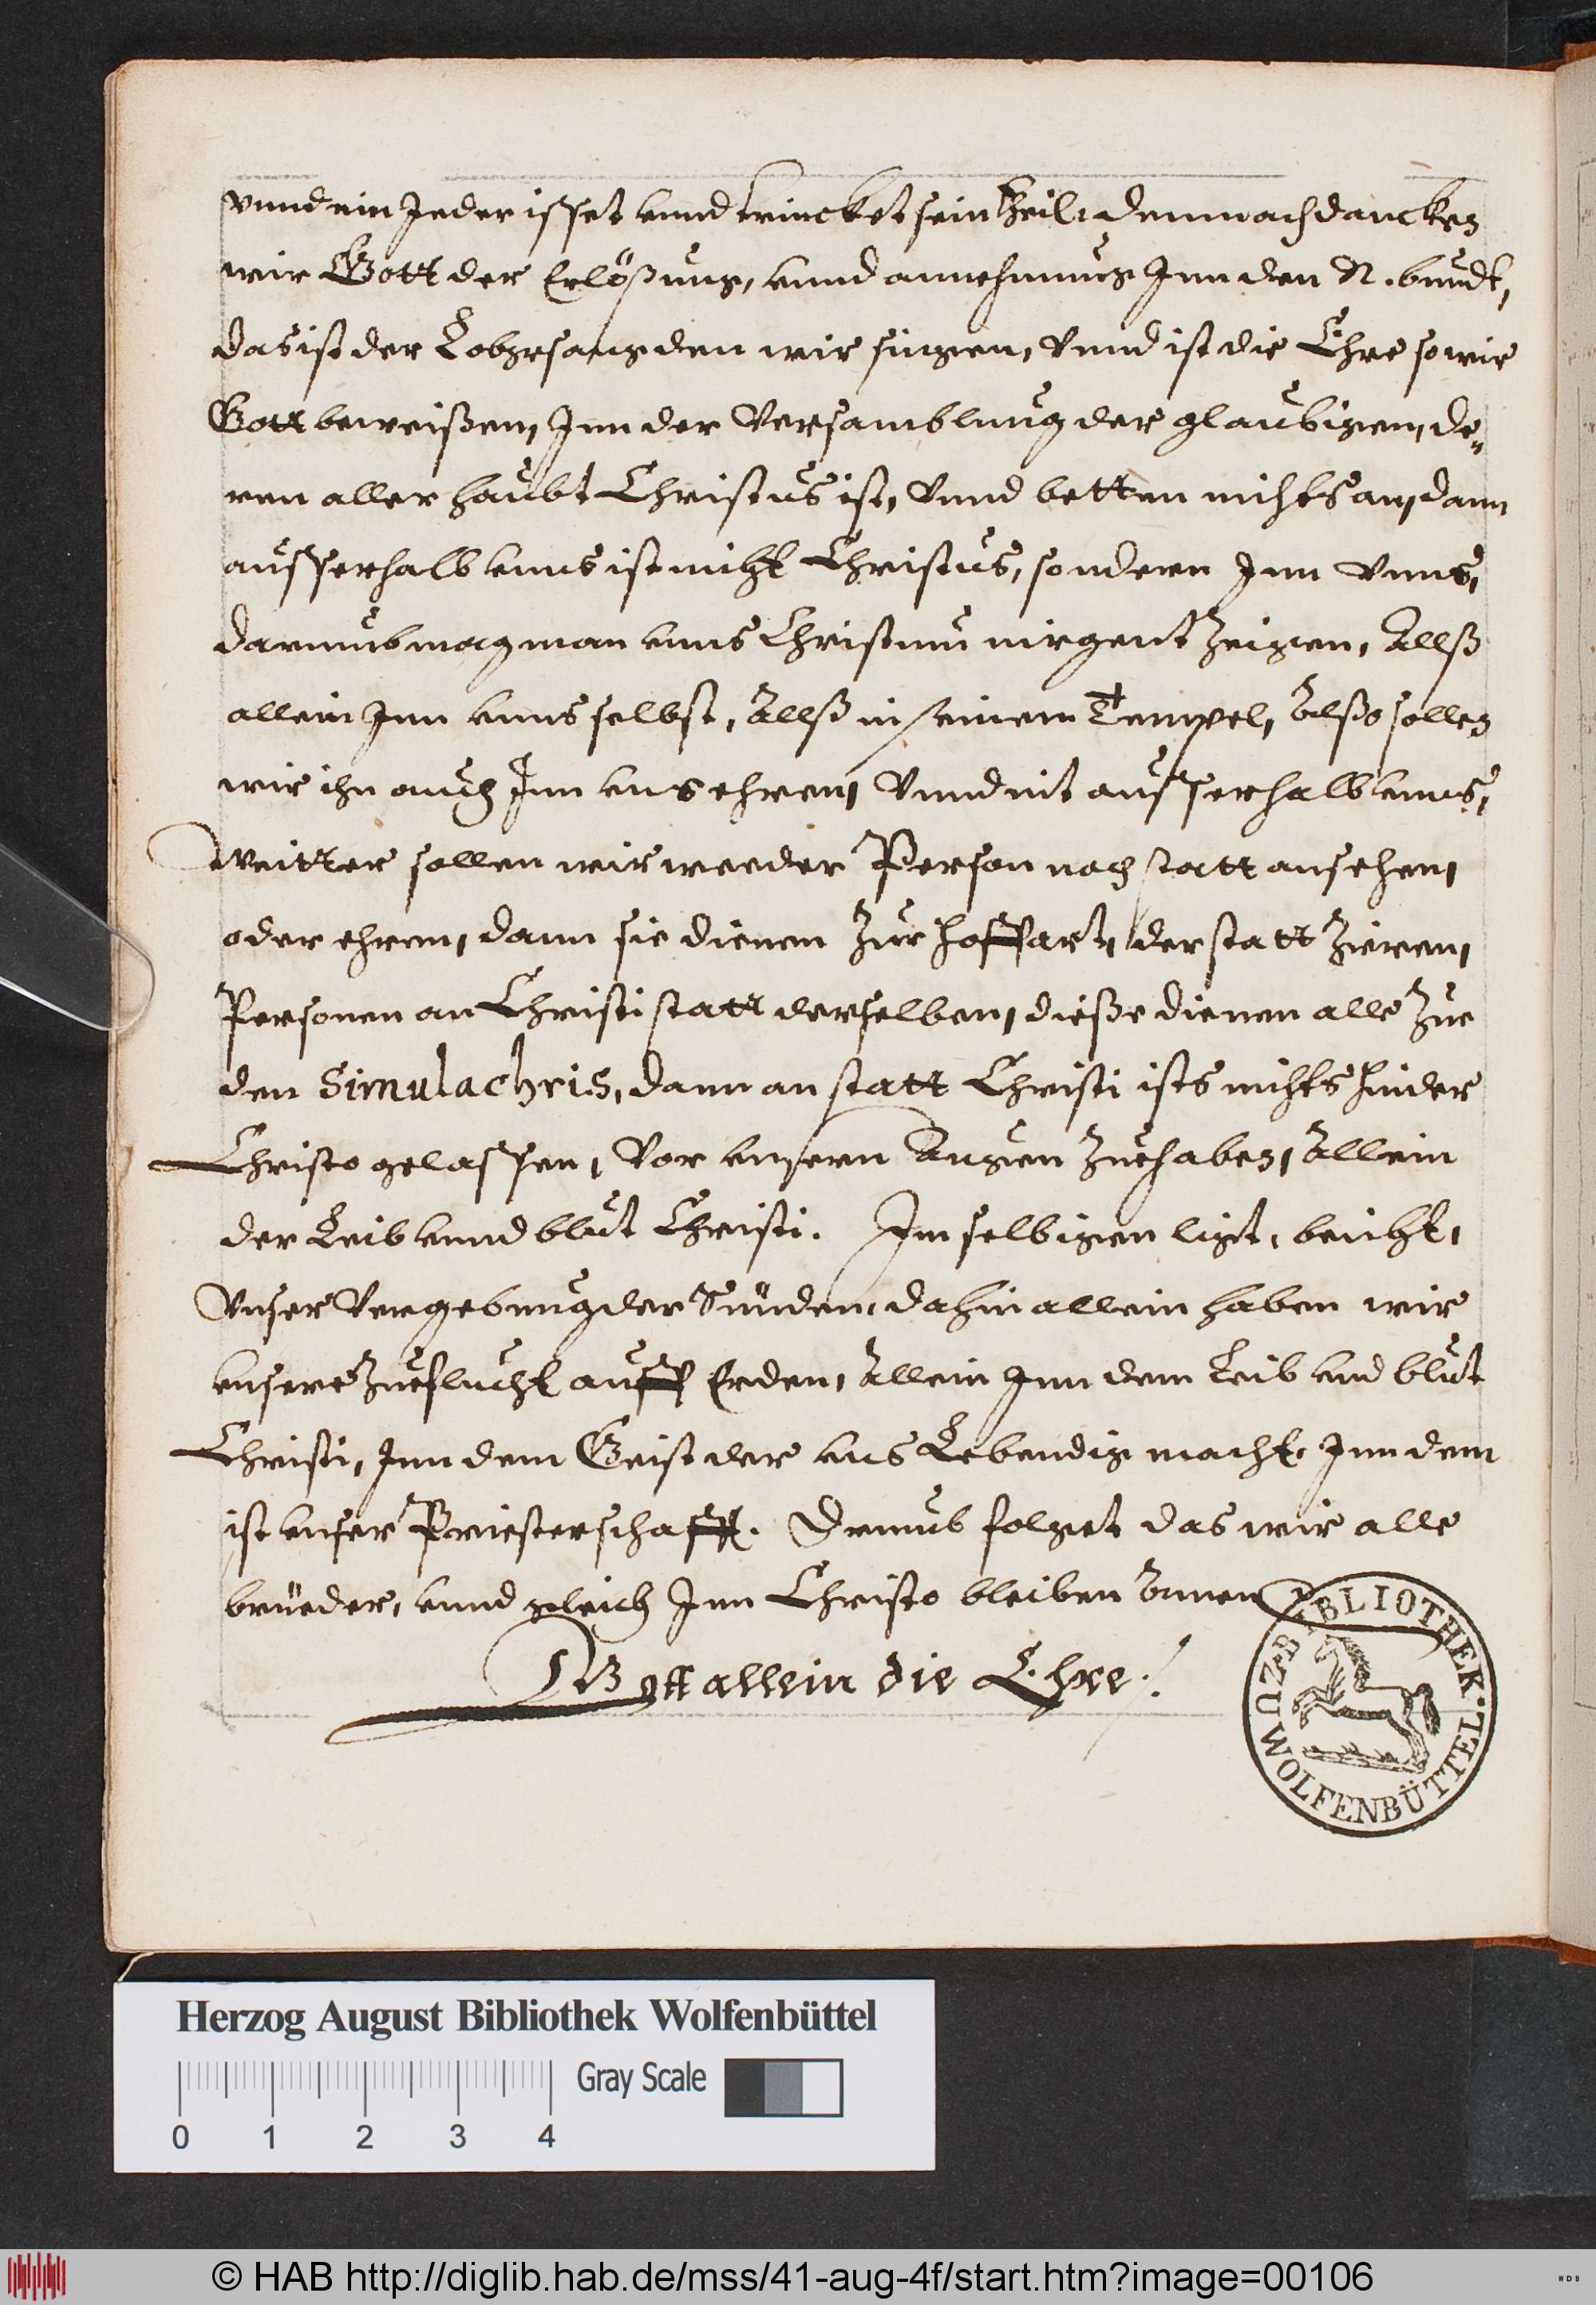 vnnd ein Jeder isset vnnd trincket sein theil, demnach dancken
wir Gott der Erlößung, vnnd annehmung Jnn den N. bundt,
das ist der Lobgesang den wir singen, Vnnd ist die Ehre so wir
Gott beweißen, Jnn der Versamblung der glaubigen, de„
ren aller haubt Christus ist, Vnnd betten nichts an, dann
ausserhalb vnns ist nicht Christus, sondern Jnn Vnns,
darumb mag man vnns Christum nirgent zeigen, Allß
allein Jnn vnns selbst, Allß in seinem Tempel, Alßo sollen
wir ihn auch Jnn vns ehren, Vnnd nit ausserhalb vnns,
Weitter sollen wir weeder Person noch statt ansehen,
oder ehren, dann sie dienen zur hoffart, der statt zieren,
Personen an Christi statt derselben, dieße dienen alle zue
den Simulachris, dann an statt Christi ists nichts hinder
Christo gelassen, Vor vnsern Augen zuehaben, Allein
der Leib vnnd blut Christi. Jm selbigen ligt, beicht,
Vnser Vergebung der Sünden, dahin allein haben wir
vnsere zueflucht auff Erden, Allein Jnn dem Leib vnd blut
Christi, Jnn dem Geist der vns Lebendig macht, Jnn dem
ist vnser Priesterschafft. Drumb folget das wir alle
brüeder, vnnd gleich Jnn Christo bleiben
Gott allein die Ehre
BIBLIOTHEK
ZU WOLFENBÜTTEL
Herzog August Bibliothek Wolfenbüttel
Gray Scale
0 1 2 3 4
© HAB http://diglib.hab.de/mss/41-aug-4f/start.htm?image=00106